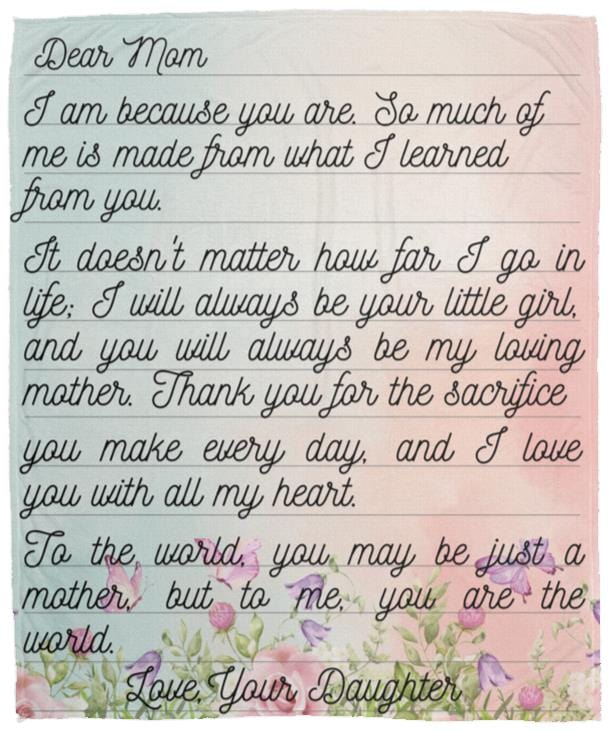 Dear Mom
I am because you are. So much of
me is made from what I learned
from you.
It doesn't matter how far I go in
life; I will always be your little girl,
and you will always be my loving
mother. Thank you for the sacrifice
you make every day, and I love
you with all my heart.
To the world, you may be just a
mother, but to me, you are the
world.
Love, Your Daughter